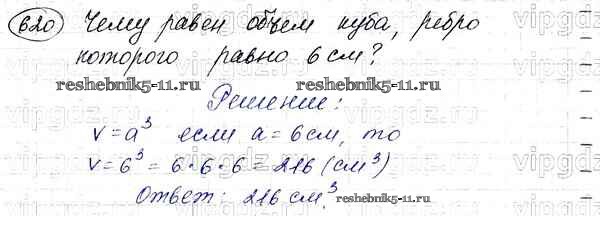 620 Чему равен объем куба, ребро
которого равно 6 см?
reshebnik5-11.ru
reshebnik5-11.ru
Решение:
v=a³ если a=6см, то
v=6³=6·6·6=216 (см³)
Ответ: 216 см³.
reshebnik5-11.ru
vipgdz.ru